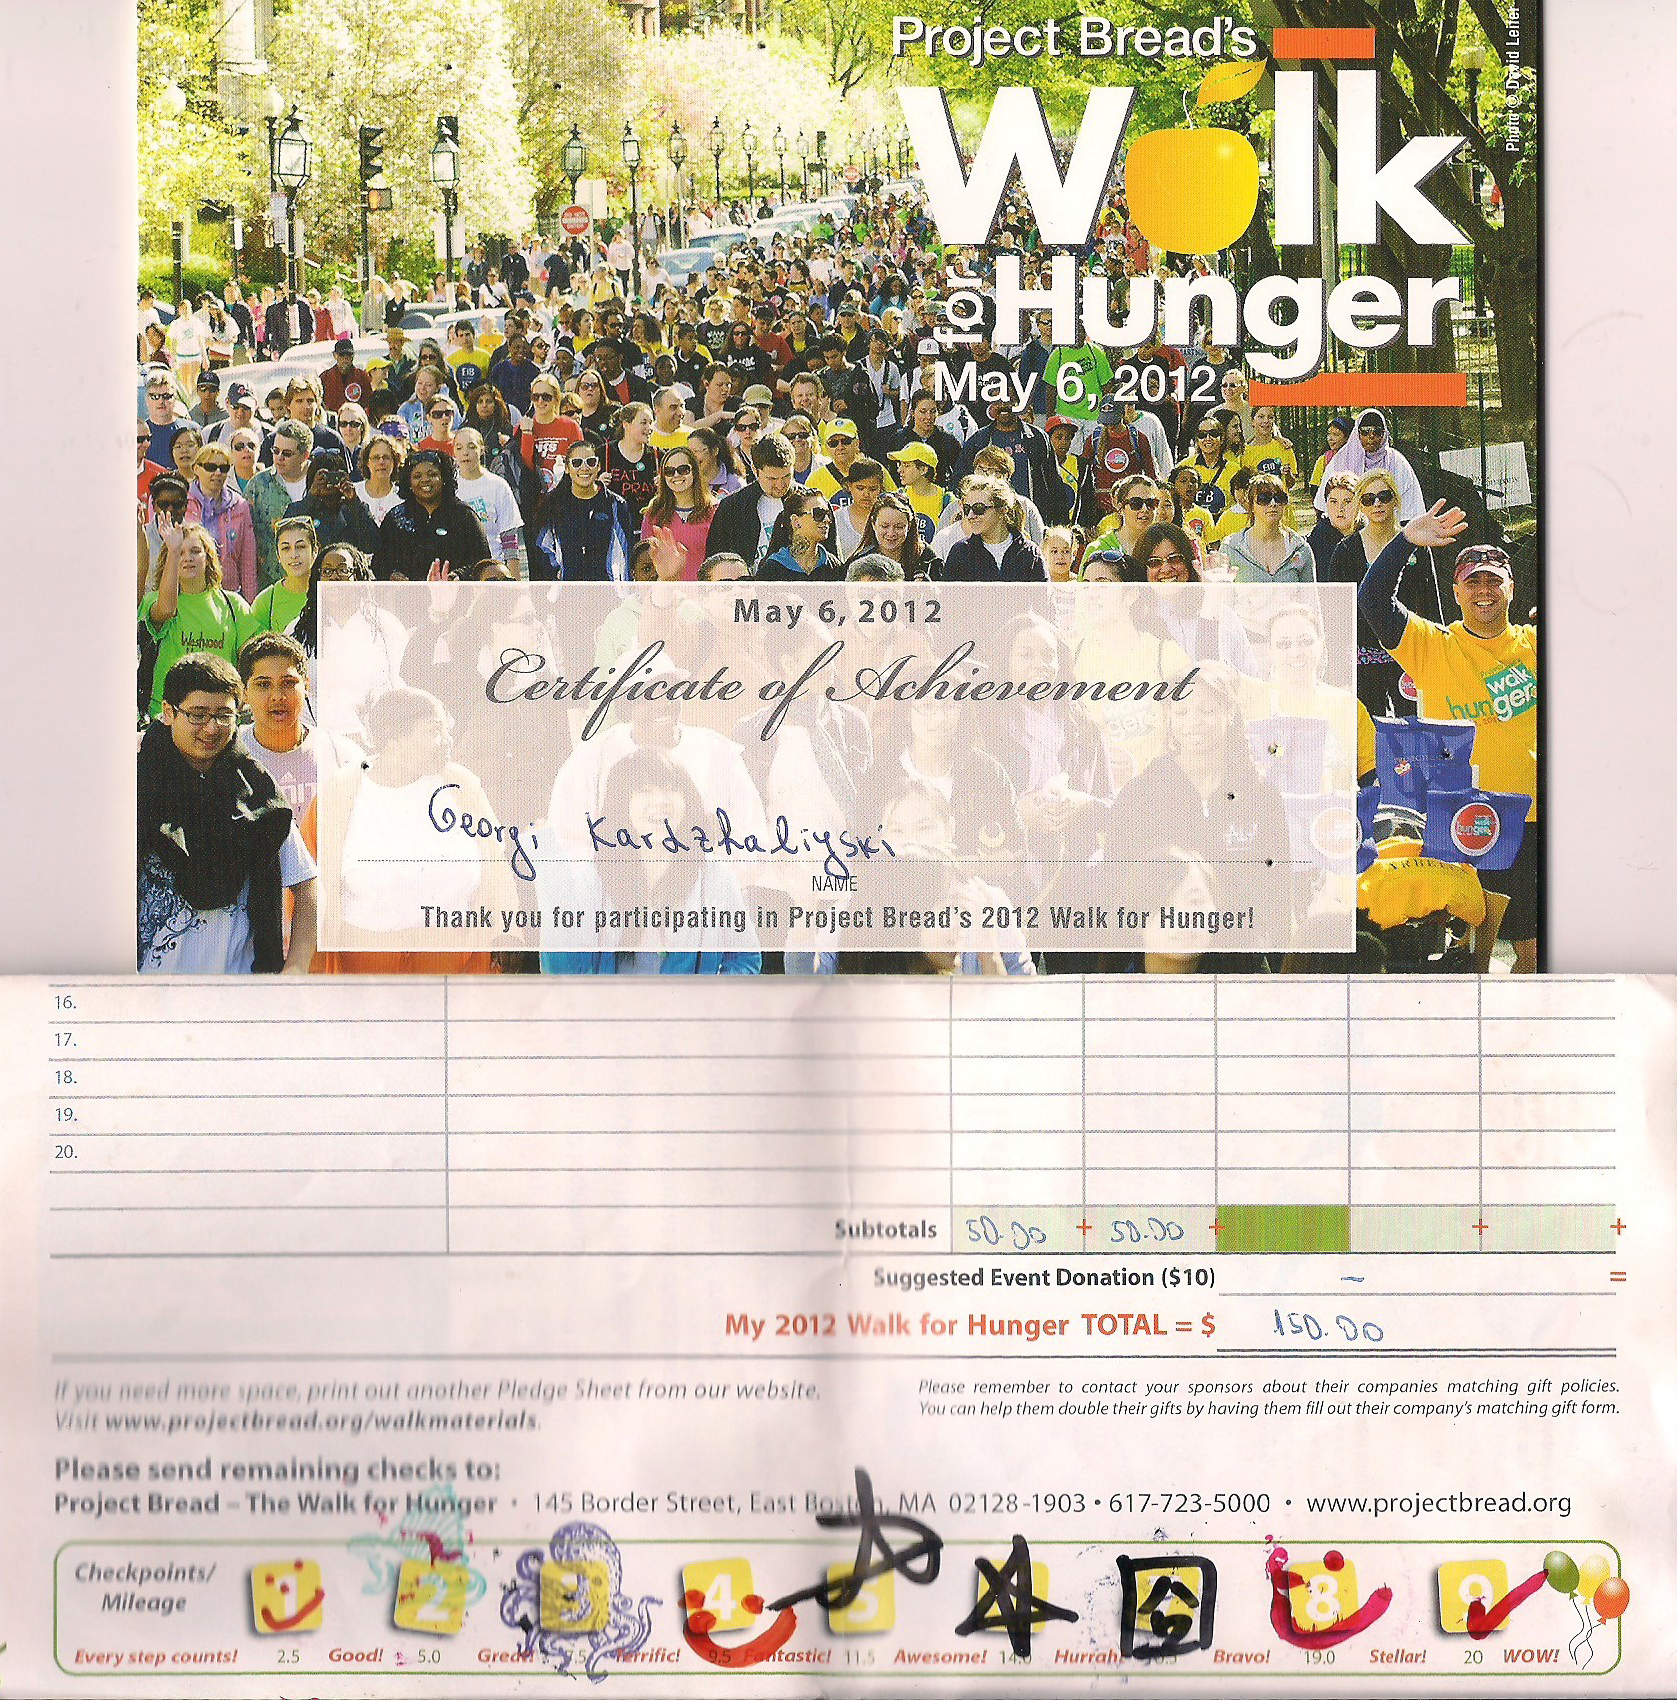 Project Bread's
Walk
for Hunger
May 6, 2012
Photo © David Leifer
EAT
PRAY
Westwood
walk
hunger
May 6, 2012
Certificate of Achievement
Georgi Kardzhaliyski
NAME
Thank you for participating in Project Bread's 2012 Walk for Hunger!
16.
17.
18.
19.
20.
Subtotals 50.00 + 50.00 + + +
Suggested Event Donation ($10) – =
My 2012 Walk for Hunger TOTAL = $ 150.00
If you need more space, print out another Pledge Sheet from our website.
Visit www.projectbread.org/walkmaterials.
Please remember to contact your sponsors about their companies matching gift policies.
You can help them double their gifts by having them fill out their company's matching gift form.
Please send remaining checks to:
Project Bread – The Walk for Hunger • 145 Border Street, East Boston, MA 02128-1903 • 617-723-5000 • www.projectbread.org
Checkpoints/
Mileage
1 2 3 4 5 8 9
Every step counts! 2.5 Good! 5.0 Great! 7.5 Terrific! 9.5 Fantastic! 11.5 Awesome! 14.0 Hurrah! Bravo! 19.0 Stellar! 20 WOW!